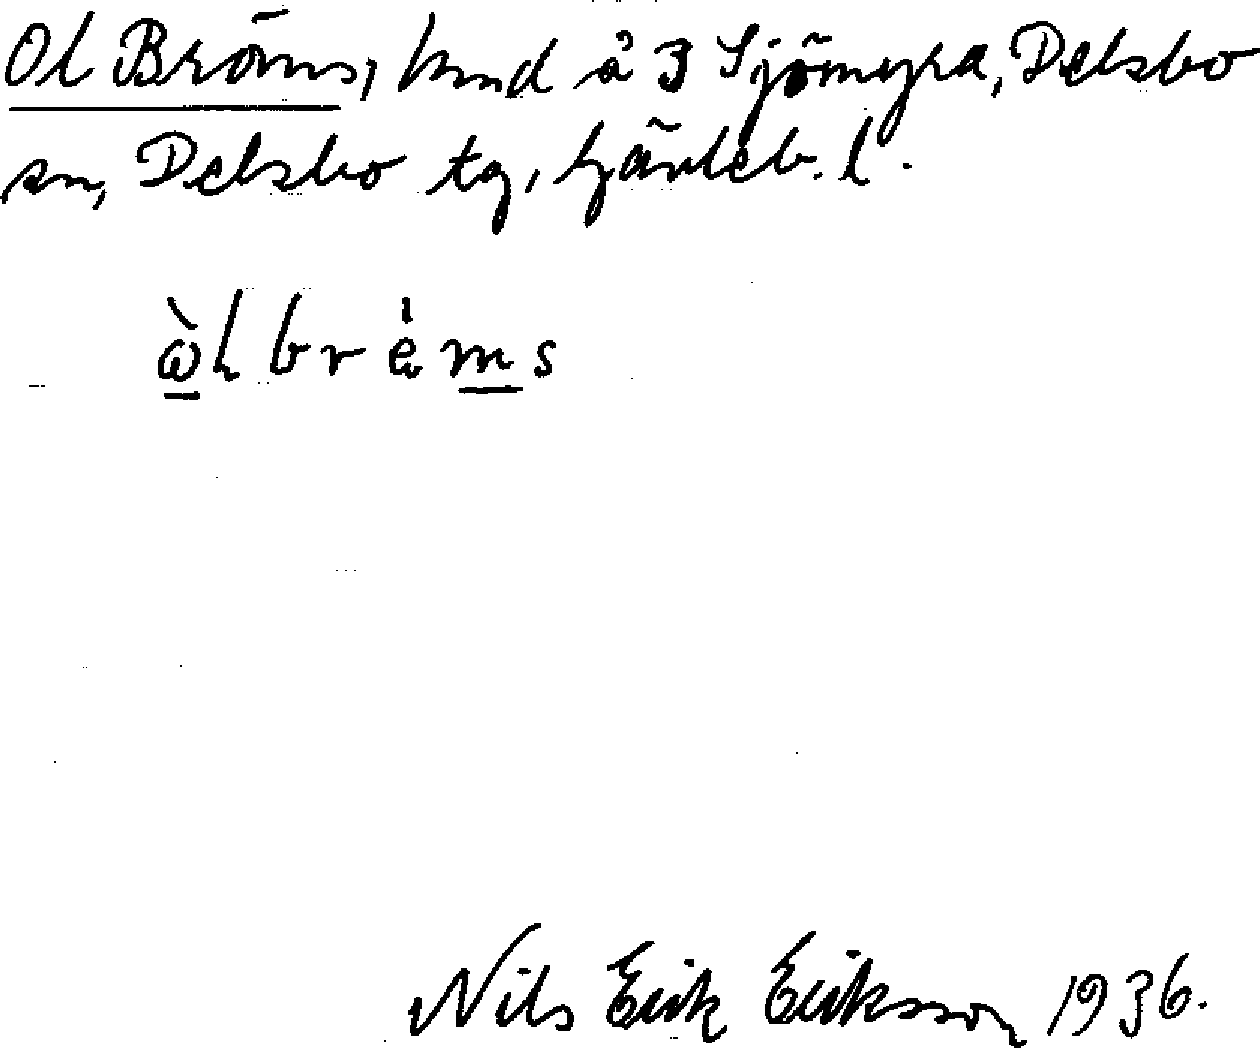 Ol Bröms, hmd å 3 Sjömyra, Delsbo
sn, Delsbo tg, Gävleb. l.
ὼl brèms
Nils Erik Eriksson 1936.